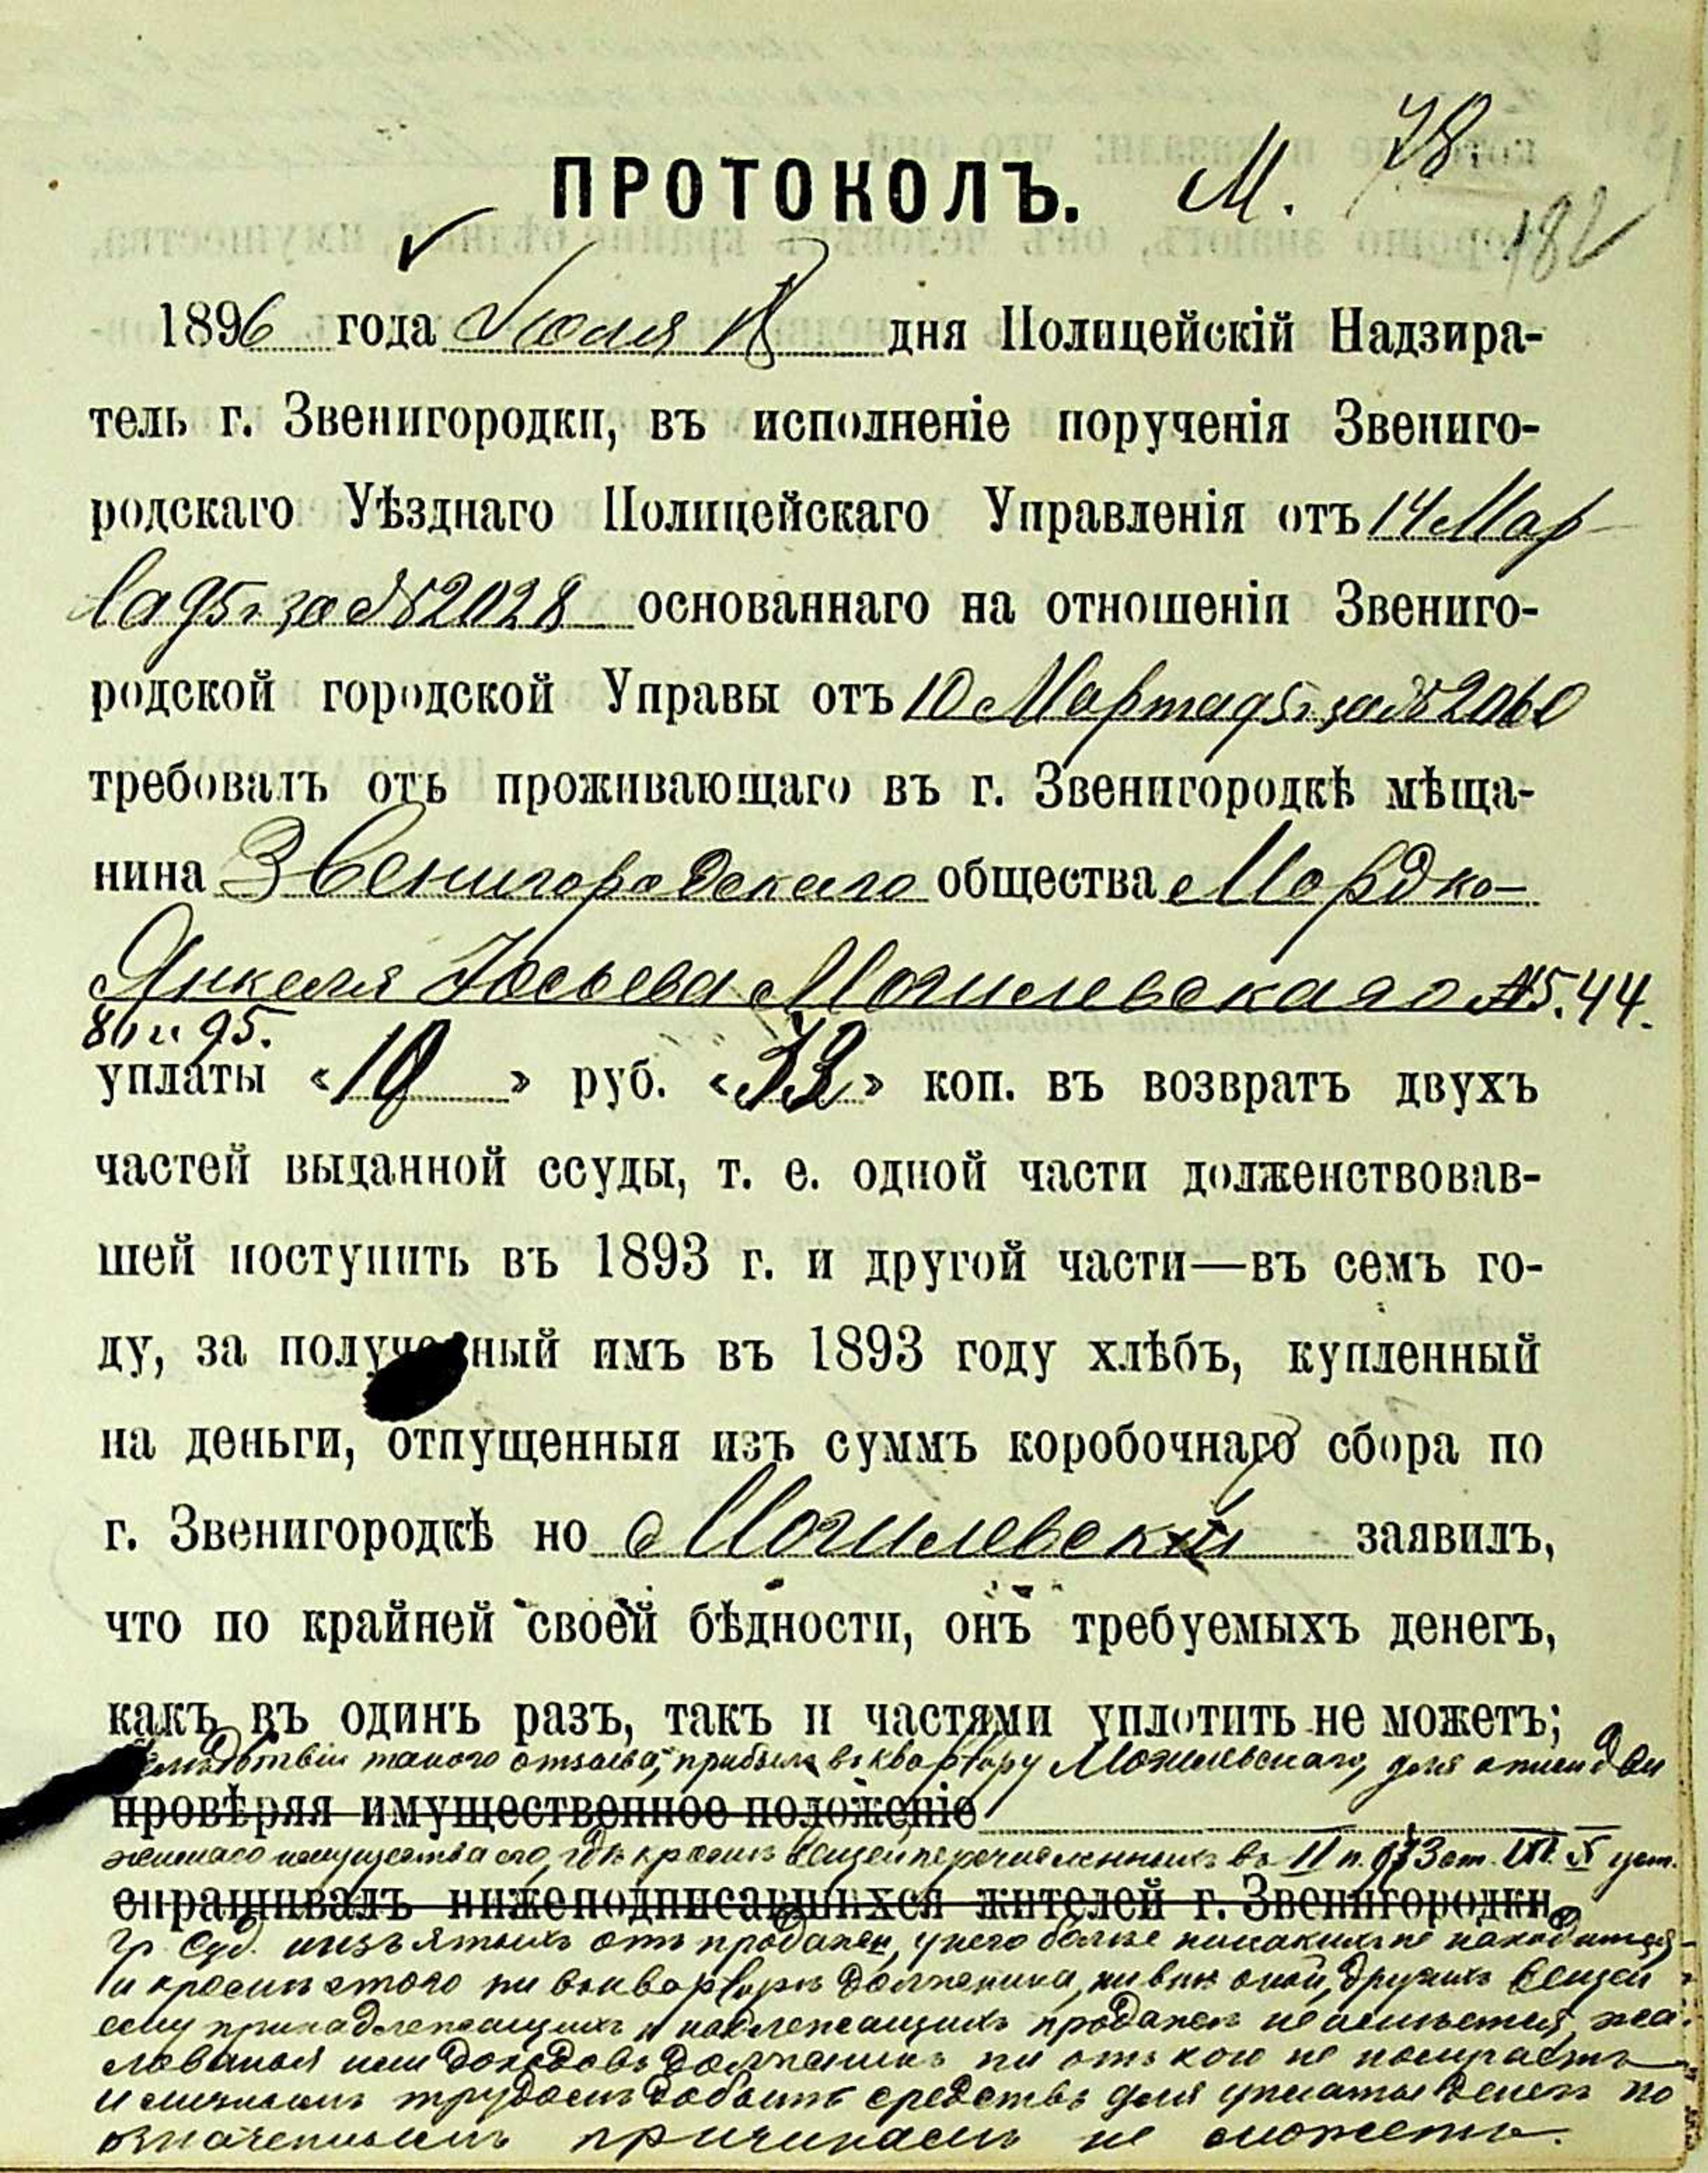 ПРОТОКОЛЪ. М. 78.
182
1896 года Іюля дня Полицейскій Надзира-
тель г. Звенигородки, въ исполненіе порученія Звениго-
родскаго Уѣзднаго Полицейскаго Управленія отъ 14 Мар
та 95 г. за № 2028 основаннаго на отношеніи Звениго-
родской городской Управы отъ 10 Марта 95 г. за № 2060
требовалъ отъ проживающаго въ г. Звенигородкѣ мѣща-
нина Звенигородскаго общества Мордко-
Янкеля Іосьева Могилевскаго № 5. 44.
80 и 95.
уплаты «10» руб. «32» коп. въ возвратъ двухъ
частей выданной ссуды, т. е. одной части долженствовав-
шей поступить въ 1893 г. и другой части—въ семъ го-
ду, за полученный имъ въ 1893 году хлѣбъ, купленный
на деньги, отпущенныя изъ суммъ коробочнаго сбора по
г. Звенигородкѣ но Могилевскій заявилъ,
что по крайней своей бѣдности, онъ требуемыхъ денегъ,
какъ въ одинъ разъ, такъ и частями уплотить не можетъ;
вслѣдствіи такого отзыва, прибылъ въ квартиру Могилевскаго, для описи дви
провѣряя имущественное положеніе
жимаго имущества его, гдѣ кромѣ вещей перечисленныхъ въ II п. 973 ст. уст.
спрашивалъ нижеподписавшихся жителей г. Звенигородки,
гр. суд. изъятыхъ отъ продажи, у него болѣе никакихъ не находится
и кромѣ этого ни въ квартирѣ должника, ни внѣ оной, другихъ вещей
ему принадлежащихъ и подлежащихъ продажѣ не имѣется, жа-
лованья или доходовъ должникъ ни отъ кого не получаетъ
и личнымъ трудомъ добыть средствъ для уплаты денегъ по
означеннымъ причинамъ не можетъ.